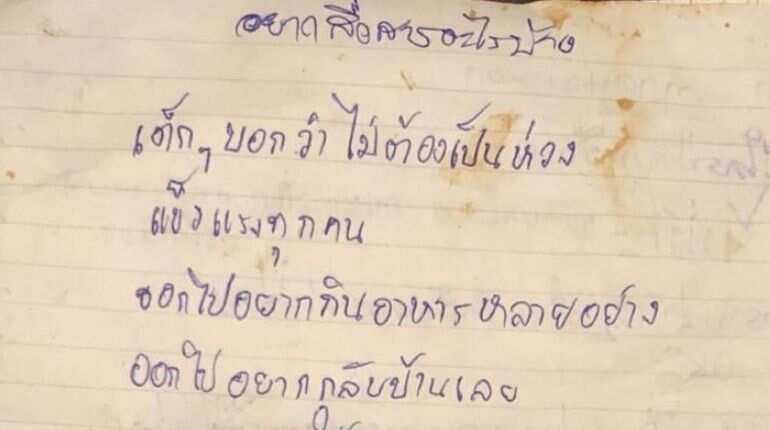 อยากสื่อสารอะไรบ้าง
เด็กๆ บอกว่า ไม่ต้องเป็นห่วง
แข็งแรงทุกคน
ออกไปอยากกินอาหารหลายอย่าง
ออกไปอยากกลับบ้านเลย